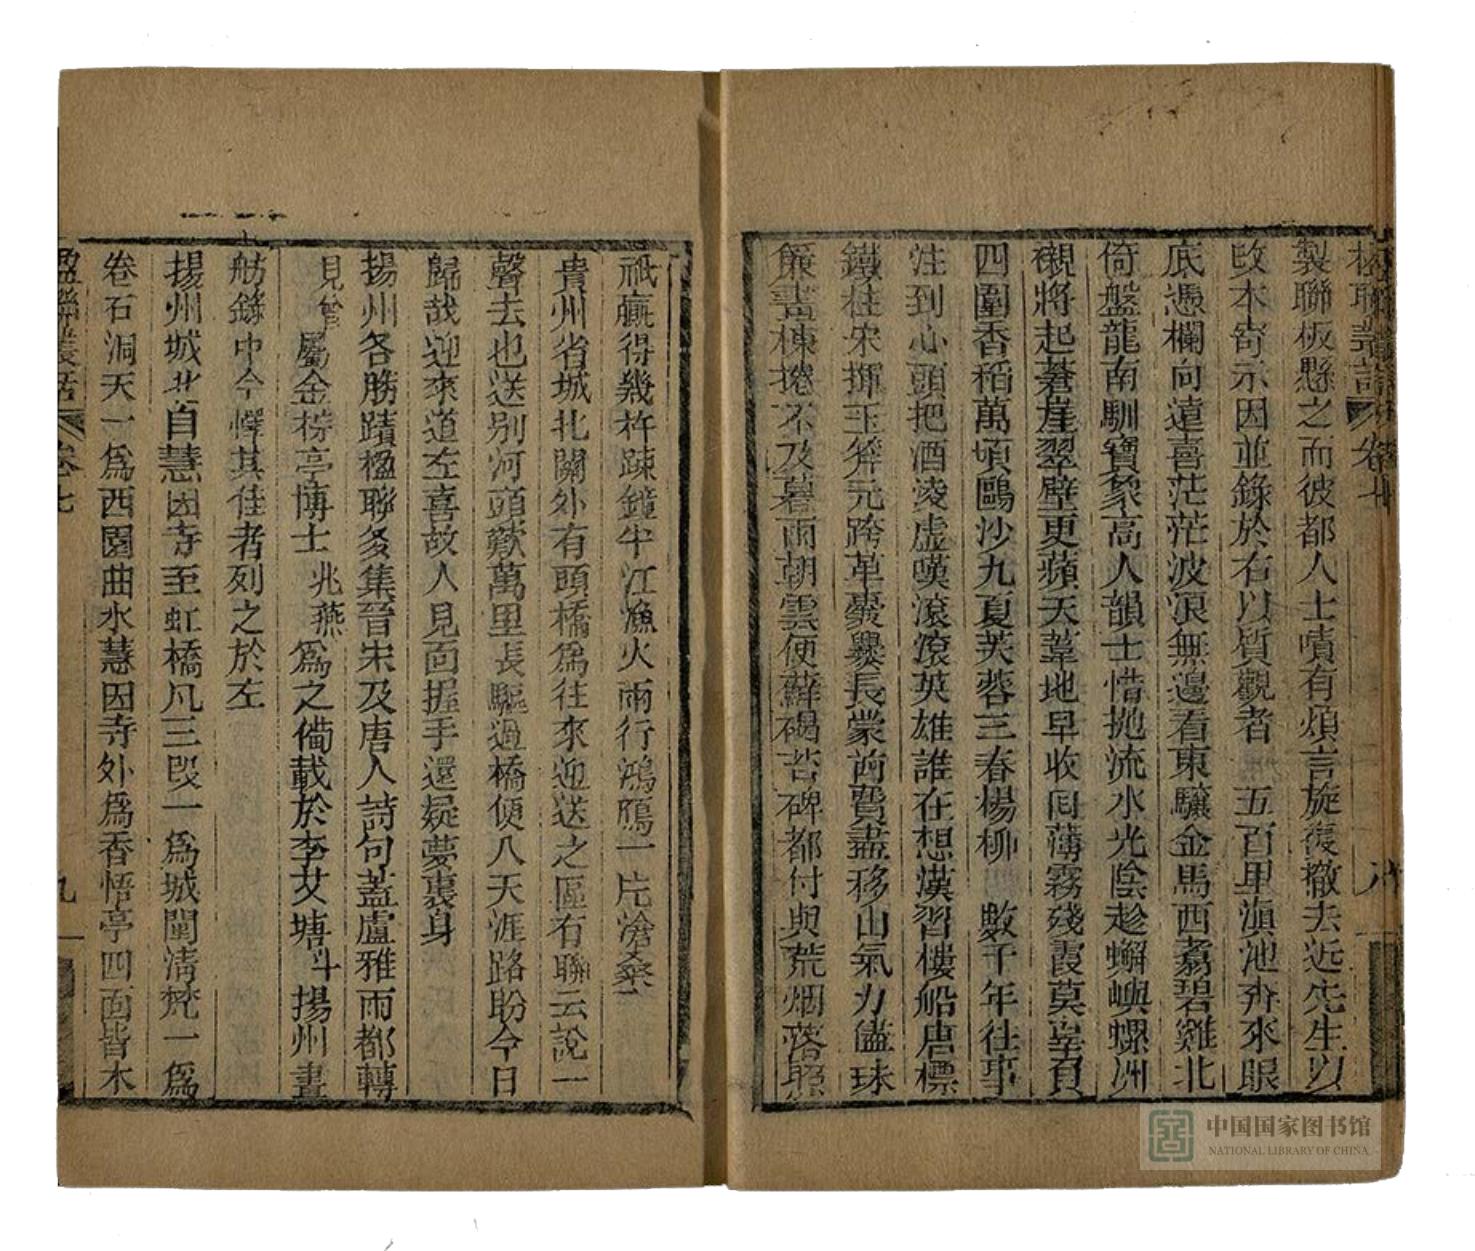 楹聯叢話 卷七 八
製聯板懸之而彼都人士嘖有煩言旋復撤去近先生以
改本寄示因並錄於右以質觀者 五百里滇池奔來眼
底憑欄向遠喜茫茫波浪無邊看東驤金馬西翥碧雞北
倚盤龍南馴寶象高人韻士惜拋流水光陰趁蟹嶼螺洲
襯將起蒼崖翠壁更蘋天葦地早收回薄霧殘霞莫辜負
四圍香稻萬頃鷗沙九夏芙蓉三春楊柳 數千年往事
注到心頭把酒淩虛嘆滾滾英雄誰在想漢習樓船唐標
鐵柱宋揮玉斧元跨革囊爨長蒙酋費盡移山氣力儘珠
簾畫棟捲不及暮雨朝雲便蘚碣苔碑都付與荒烟落照
祇贏得幾杵疎鐘半江漁火兩行鴻鴈一片滄桑
貴州省城北關外有頭橋為往來迎送之區有聯云說一
聲去也送別河頭歎萬里長驅過橋便入天涯路盼今日
歸哉迎來道左喜故人見面握手還疑夢裏身
揚州各勝蹟楹聯多集晉宋及唐人詩句蓋盧雅雨都轉
見曾 屬金棕亭博士 兆燕 為之備載於李艾塘 斗 揚州畫
舫錄中今擇其佳者列之於左
揚州城北自慧因寺至虹橋凡三段一為城闉清梵一為
卷石洞天一為西園曲水慧因寺外為香悟亭四面皆木
楹聯叢話 卷七 九
中国国家图书馆
NATIONAL LIBRARY OF CHINA